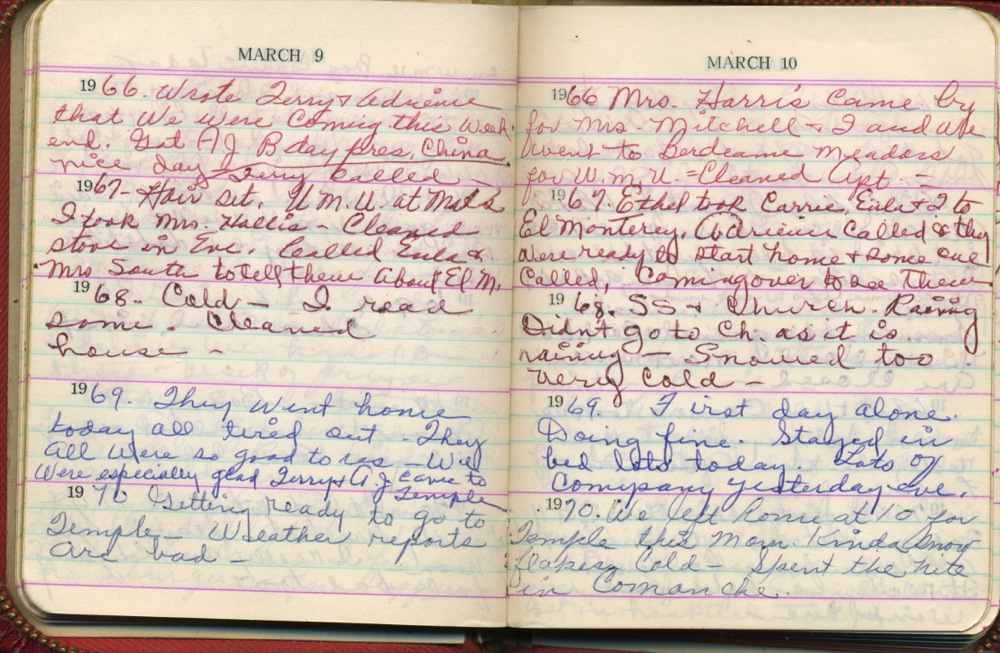 MARCH 9
1966. Wrote Terry & Adriene
that we were coming this week
end. Got A.J. B day pres, China
nice day - Terry called
1967. Hair set. W.M.U. at Mat's
I took Mrs. Hallis - Cleaned
stove in Eve. Called Eula &
Mrs South to tell them about El M.
1968. Cold - I read
some. Cleaned
house -
1969. They went home
today all tired out - They
all were so good to us - We
were especially glad Terry & A.J. came to
Temple
1970 Getting ready to go to
Temple - Weather reports
are bad -
MARCH 10
1966 Mrs. Harris came by
for Mrs. Mitchell & I and we
went to Meadors
for W.M.U. - Cleaned Apt. -
1967. Ethel took Carrie, Eula & I to
El Monterey. Adriene called & they
were ready to start home & some one
called, coming over to see them
1968. SS & Church. Raining
Didn't go to Ch. as it is
raining - Snowed too
very cold -
1969. First day alone.
Doing fine. Stayed in
bed late today. Lots of
company yesterday eve.
1970. We left home at 10 for
Temple this morn. Kinda snow
flakes, Cold - Spent the nite
in Comanche.